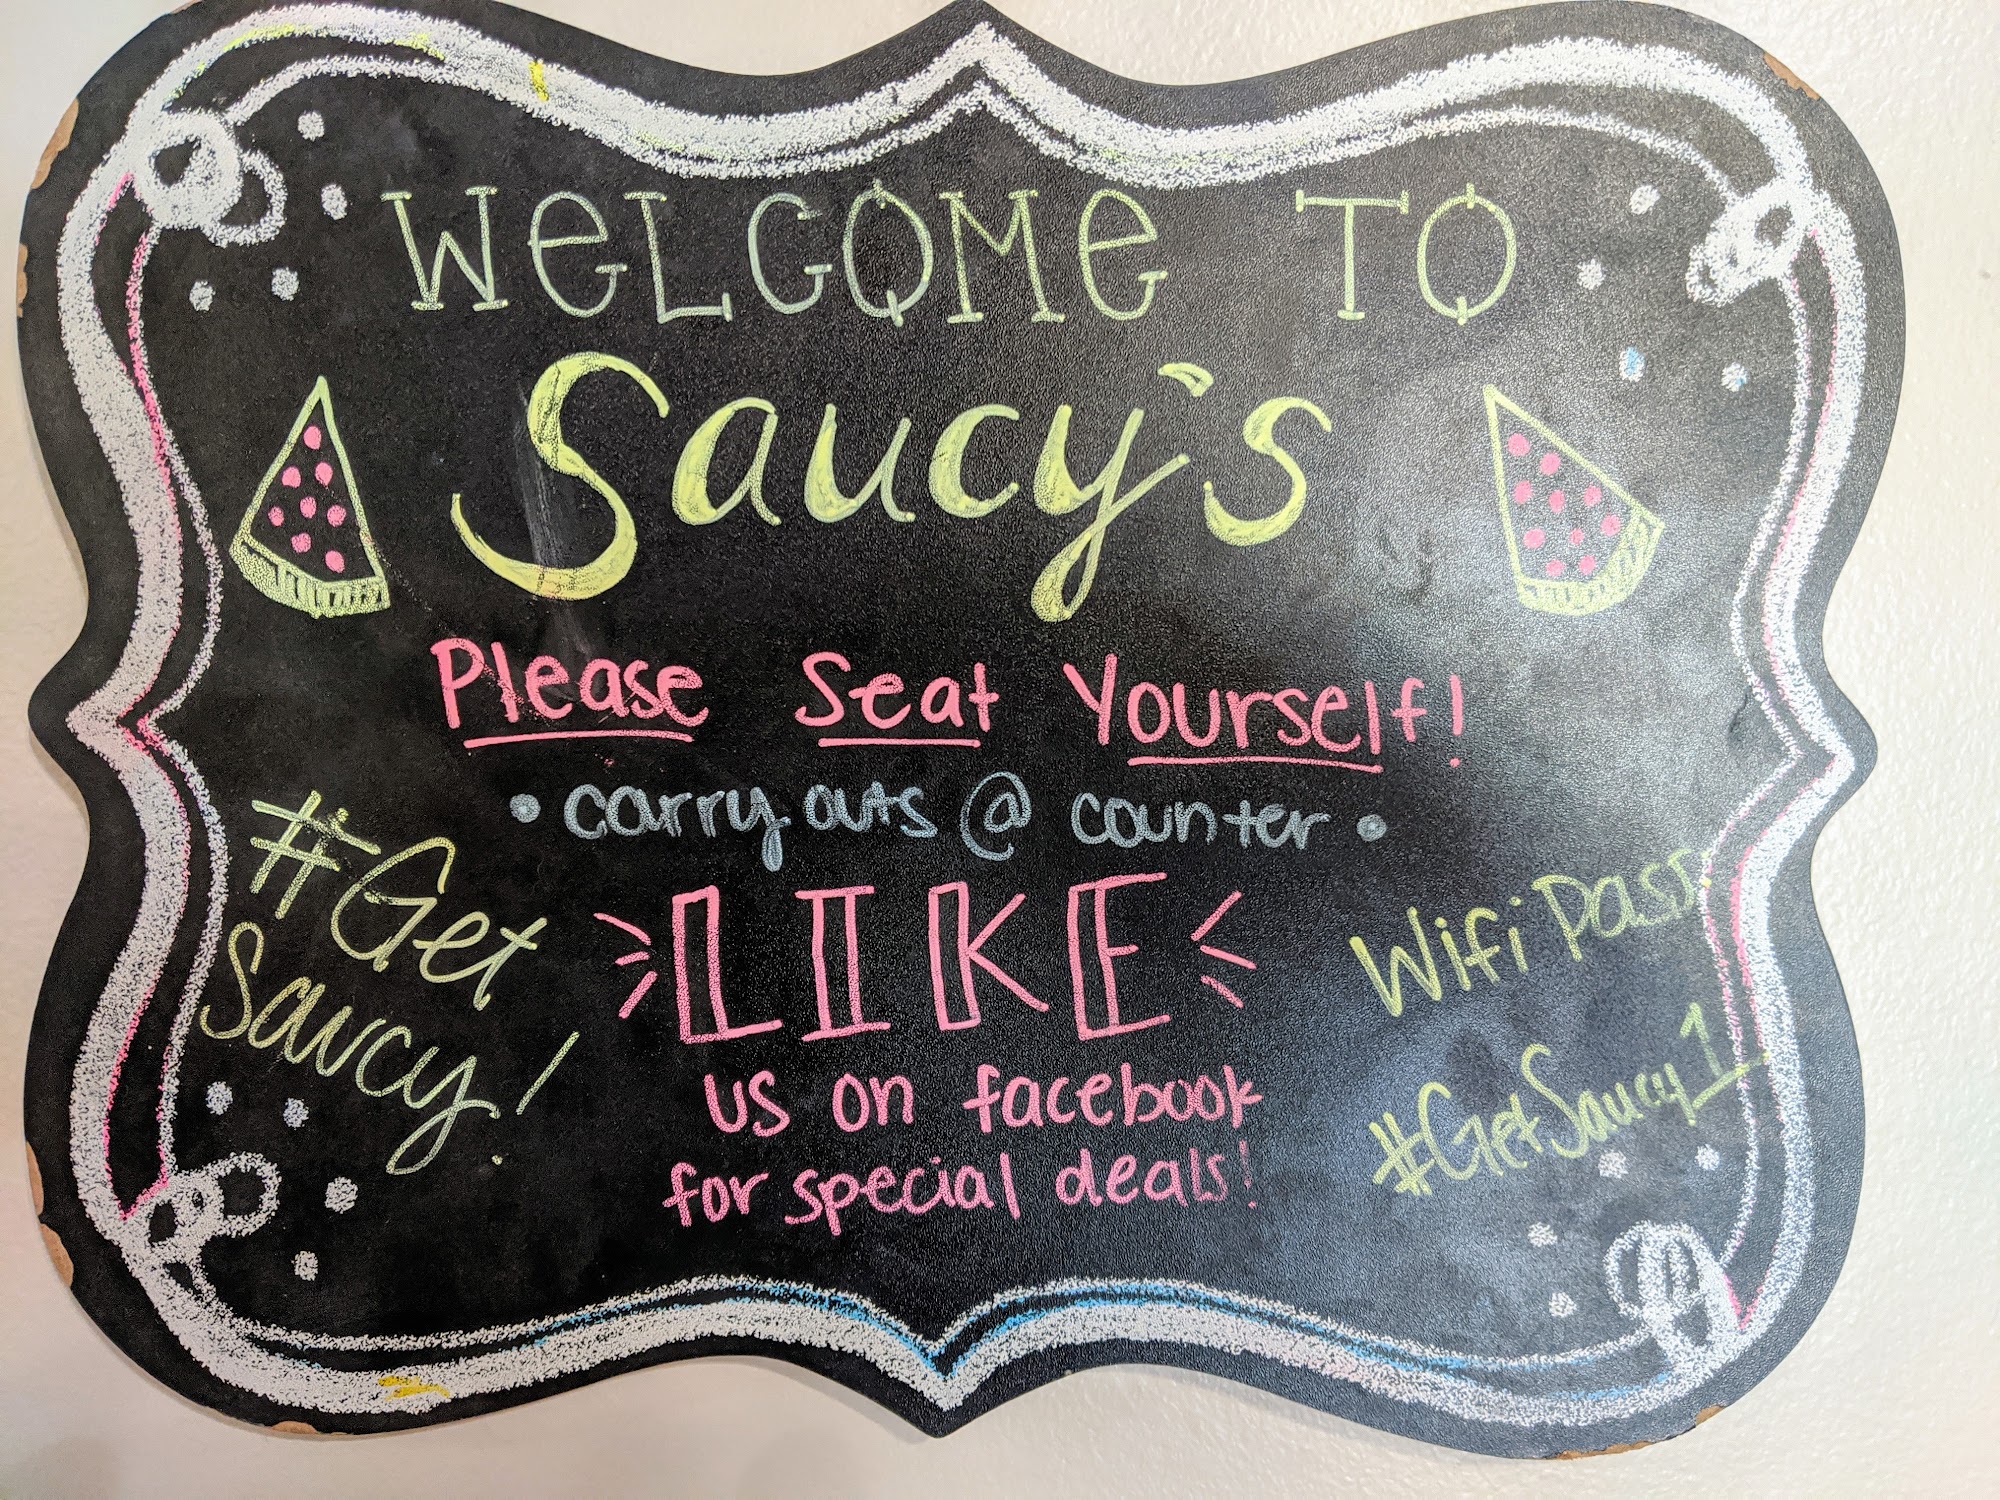 WeLCOMe TO
Saucy's
Please Seat Yourself!
• carry outs @ counter •
#Get
Saucy!
LIKE
us on facebook
for special deals!
Wifi Pass:
#GetSaucy1